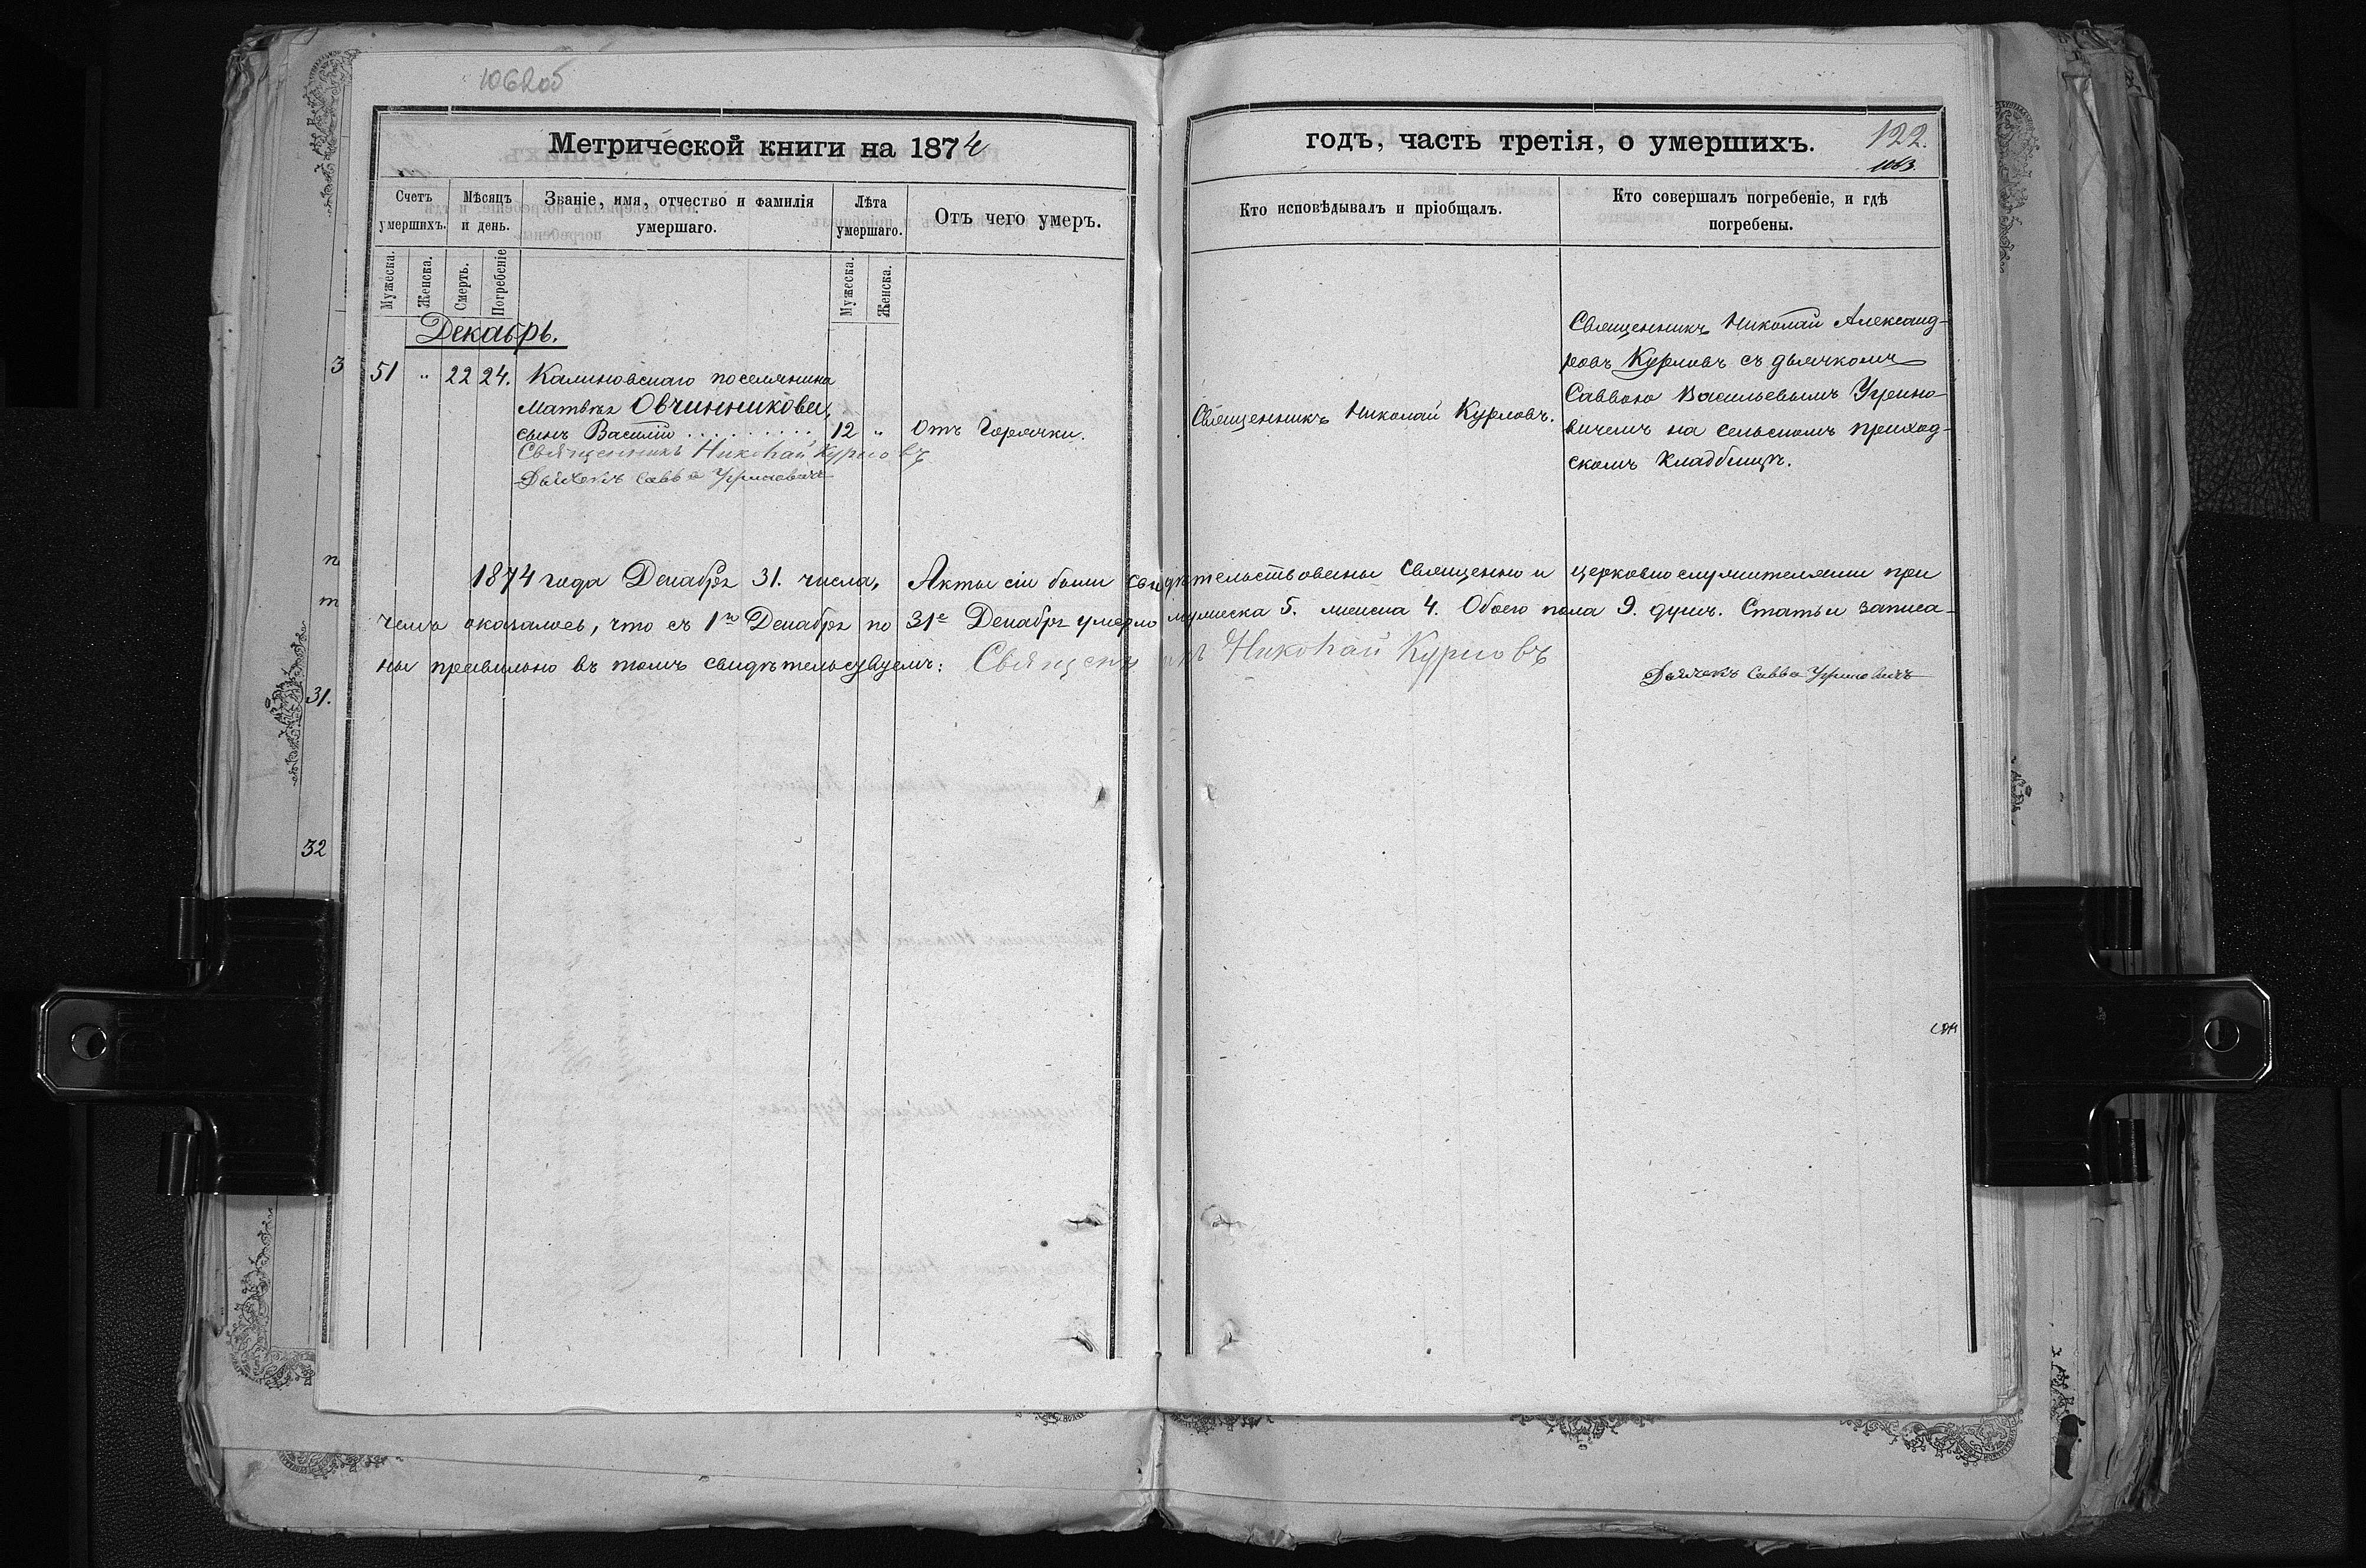 1062об
Метрической книги на 1874
Счетъ умершихъ.
Мѣсяцъ и день.
Званіе, имя, отчество и фамилія умершаго.
Лѣта умершаго.
Отъ чего умеръ.
Мужеска.
Женска.
Смерть.
Погребеніе
Мужеска.
Женска.
Декабрь.
51 " 22 24. Калиновскаго поселянина
Матвѣя Овчинникова,
сынъ Василій . . . . . . . . . . 12 " Отъ Горячки.
Священникъ Николай Курловъ
Дьячекъ Савва
годъ, часть третія, о умершихъ.
122.
1063.
Кто исповѣдывалъ и пріобщалъ.
Кто совершалъ погребеніе, и гдѣ погребены.
Священникъ Николай Курловъ.
Священникъ Николай Александ-
ровъ Курловъ съ дьячкомъ
Саввою Васильевымъ Угрино-
вичемъ на сельскомъ приход-
скомъ кладбищѣ.
1874 года Декабря 31. числа, Акты сіи были свидѣтельствованы священно и церковно служителями при
чемъ оказалось, что съ 1го Декабря по 31е Декабря умерло мужеска 5. женска 4. Обоего пола 9. душъ. Статьи записа-
ны правильно въ томъ свидѣтельствуемъ: Священникъ Николай Курловъ
Дьячекъ Савва Угриновичъ
3
31.
32